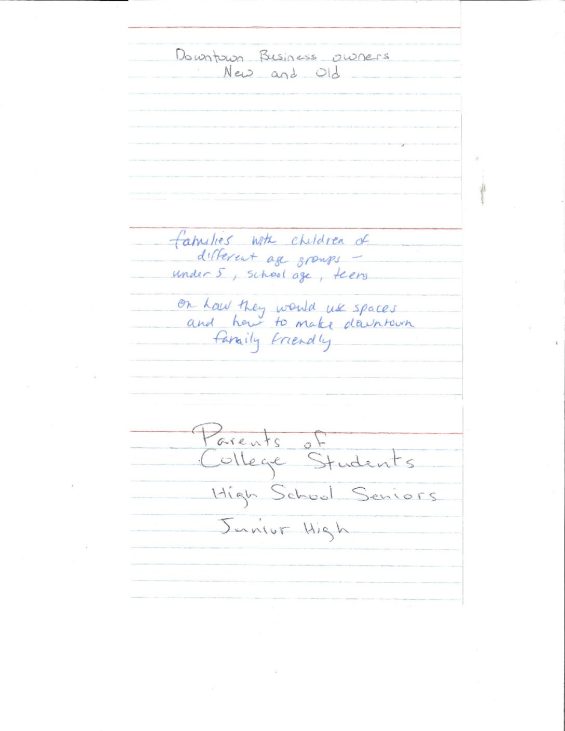 Downtown Business owners
New and Old
families with children of
different age groups -
under 5, school age, teens
on how they would use spaces
and how to make downtown
family friendly
Parents of
College Students
High School Seniors
Junior High